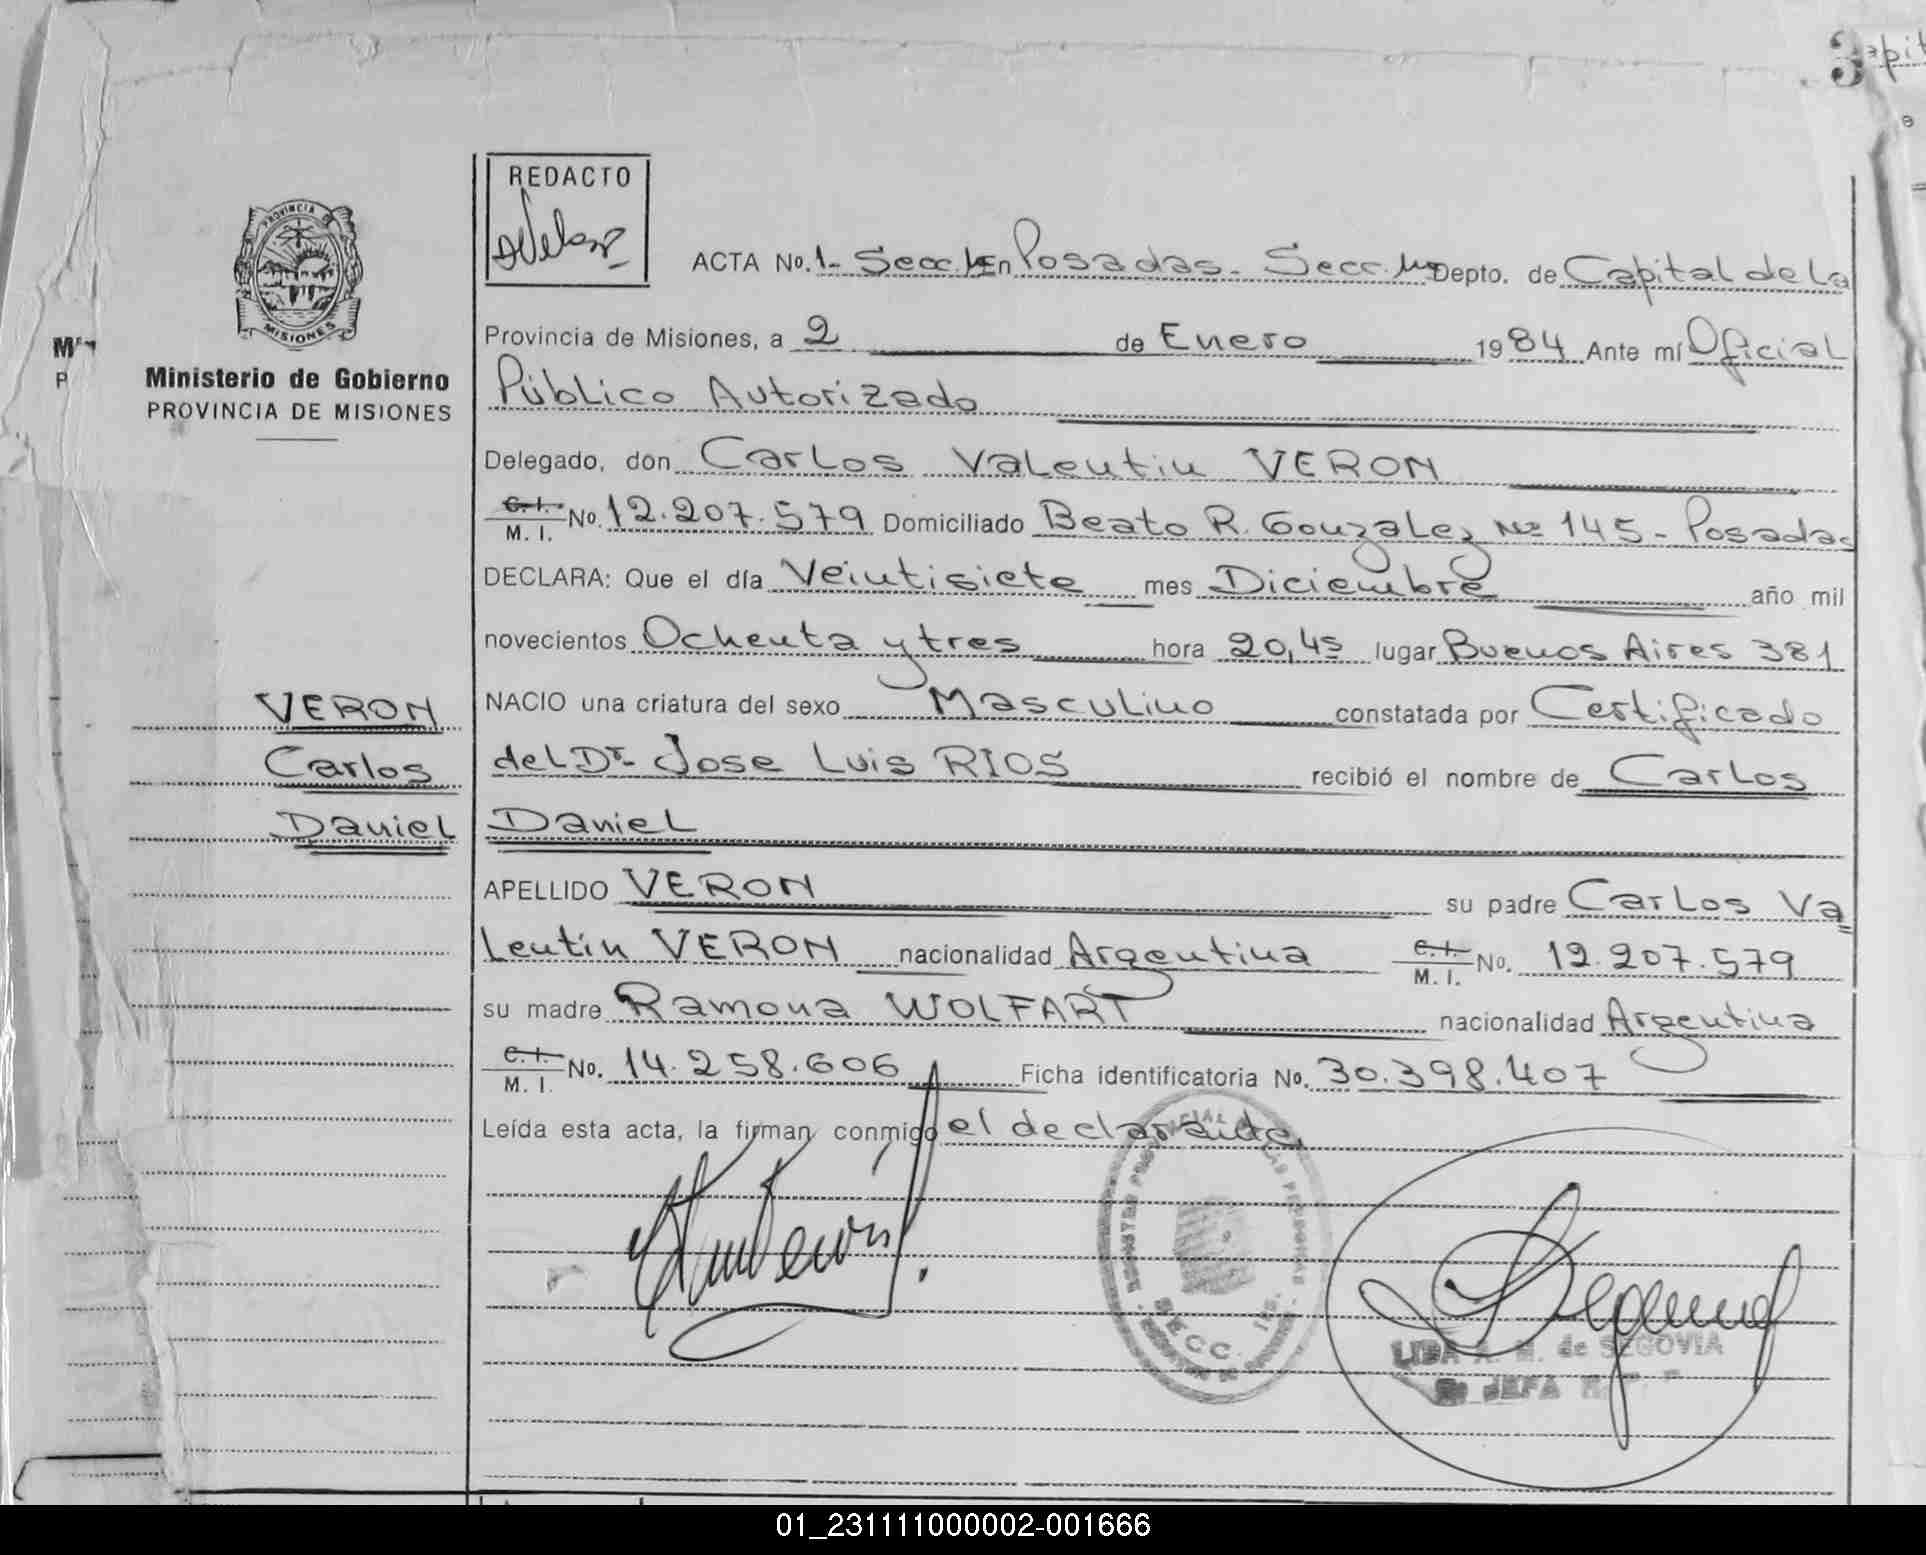 3
REDACTO
ACTA No. 1- Secc. 1ra En Posadas - Secc. 1ra Depto. de Capital de La
Provincia de Misiones, a 2 de Enero 1984 Ante mí Oficial
Público Autorizado
Delegado, don Carlos Valentin VERON
C.I. M. I. No. 12.207.579 Domiciliado Beato R. Gonzalez Nº 145 - Posadas
DECLARA: Que el día Veintisiete mes Diciembre año mil
novecientos Ochenta y tres hora 20,45 lugar Buenos Aires 381
NACIO una criatura del sexo Masculino constatada por Certificado
del Dr. Jose Luis RIOS recibió el nombre de Carlos
Daniel
APELLIDO VERON su padre Carlos Va
Lentín VERON nacionalidad Argentina C.I. M. I. No. 12.207.579
su madre Ramona WOLFART nacionalidad Argentina
C.I. M. I. No. 14.258.606 Ficha identificatoria No. 30.398.407
Leída esta acta, la firman conmigo el declarante,
PROVINCIA DE
MISIONES
Ministerio de Gobierno
PROVINCIA DE MISIONES
VERON
Carlos
Daniel
SECC. 1ra.
LIDA A. M. de SEGOVIA
JEFA
01_231111000002-001666